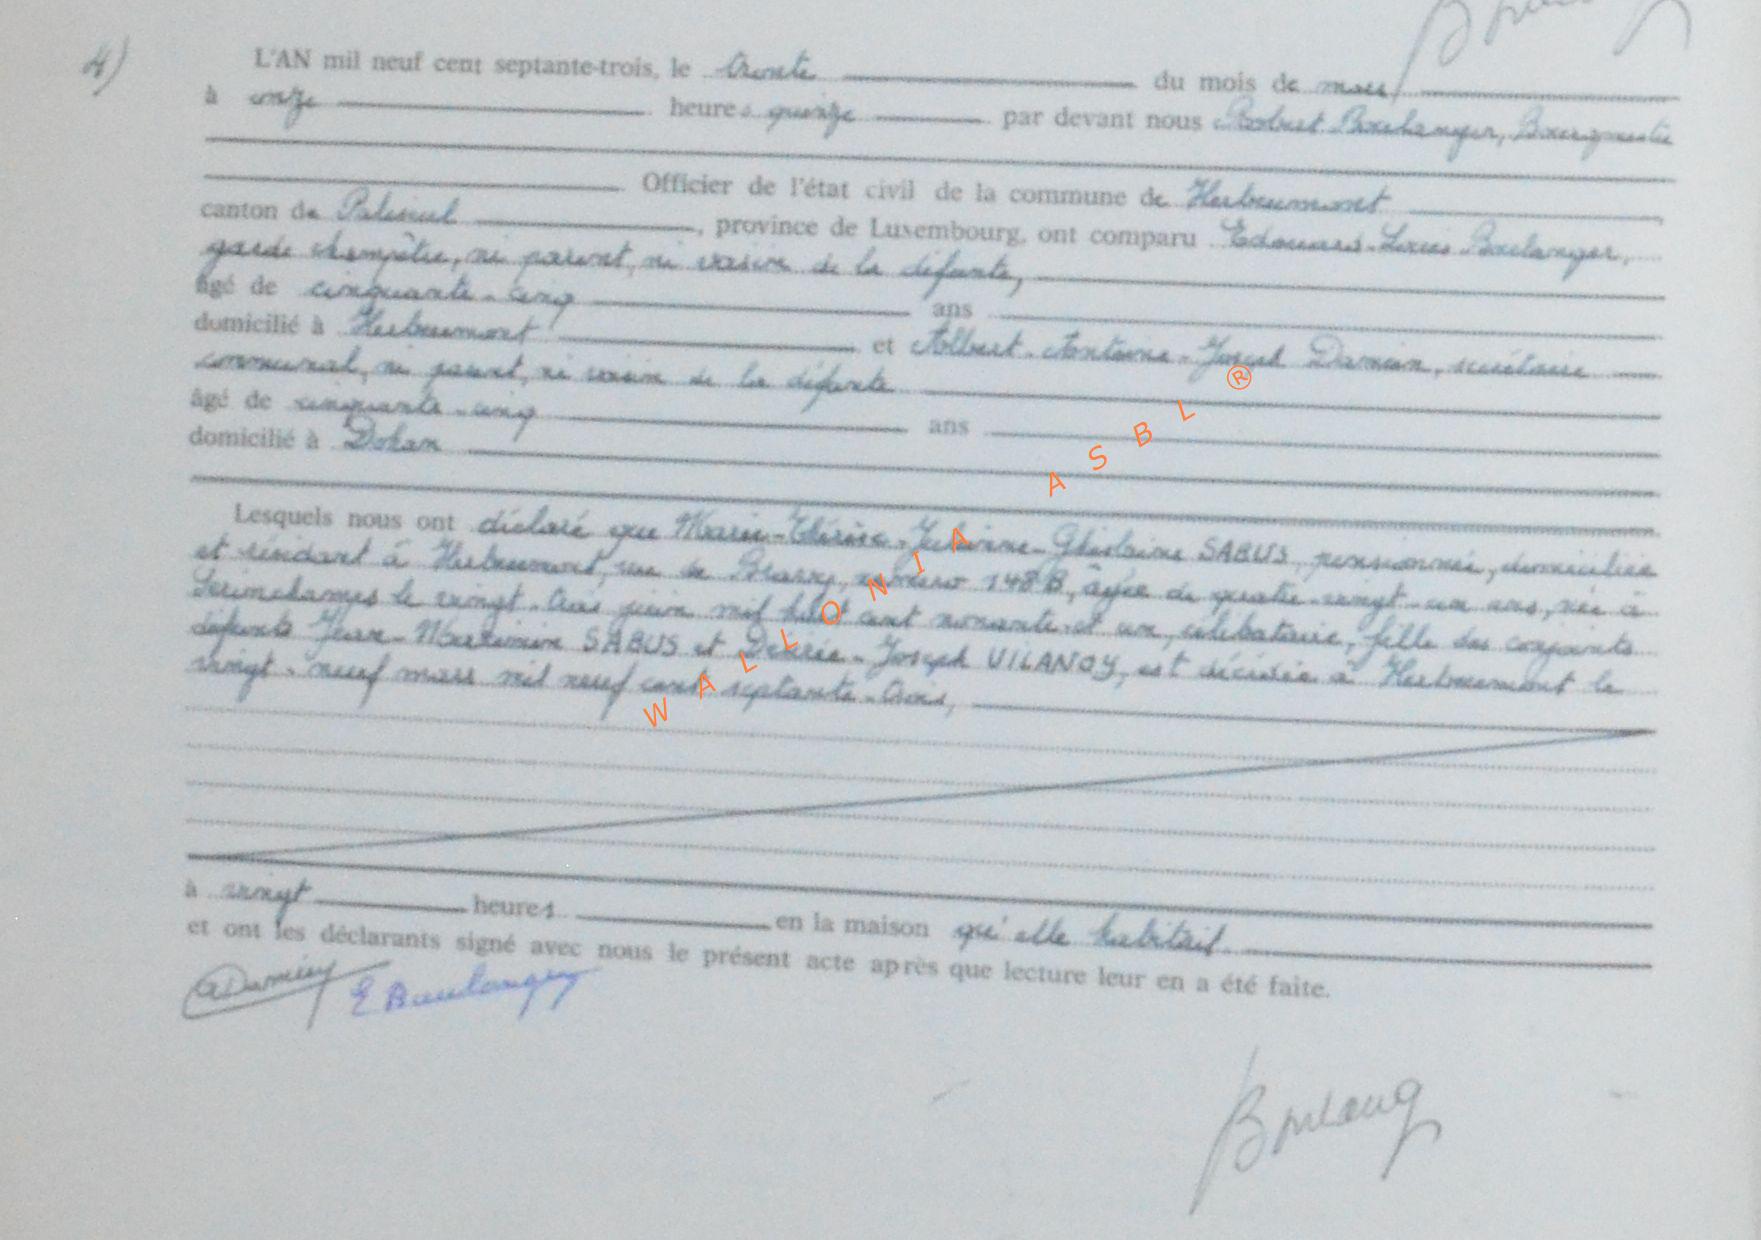 4)
L'AN mil neuf cent septante-trois, le trente du mois de mars
à onze heures quinze par devant nous Robert Boulanger, Bourgmestre
Officier de l'état civil de la commune de Herbeumont
canton de Paliseul, province de Luxembourg, ont comparu Edouard-Louis Boulanger,
garde champêtre, ni parent, ni voisin de la défunte,
âgé de cinquante-cinq ans
domicilié à Herbeumont et Albert-Antoine-Joseph Damien, secrétaire
communal, ni parent, ni voisin de la défunte
âgé de cinquante-cinq ans
domicilié à Dohan
Lesquels nous ont déclaré que Marie-Thérèse-Ghislaine SABUS, pensionnée, domiciliée
et résidant à Herbeumont, rue de numéro 148 B, âgée de quatre-vingt-un ans, née à
le vingt-trois juin mil huit cent nonante et un, célibataire, fille des conjoints
défunts Jean- SABUS et Désirée-Joseph VILANOY, est décédée à Herbeumont le
vingt-neuf mars mil neuf cent septante-trois,
à vingt heures en la maison qu'elle habitait
et ont les déclarants signé avec nous le présent acte après que lecture leur en a été faite.
ADamien E Boulanger
Boulang
WALLONIA ASBL ®